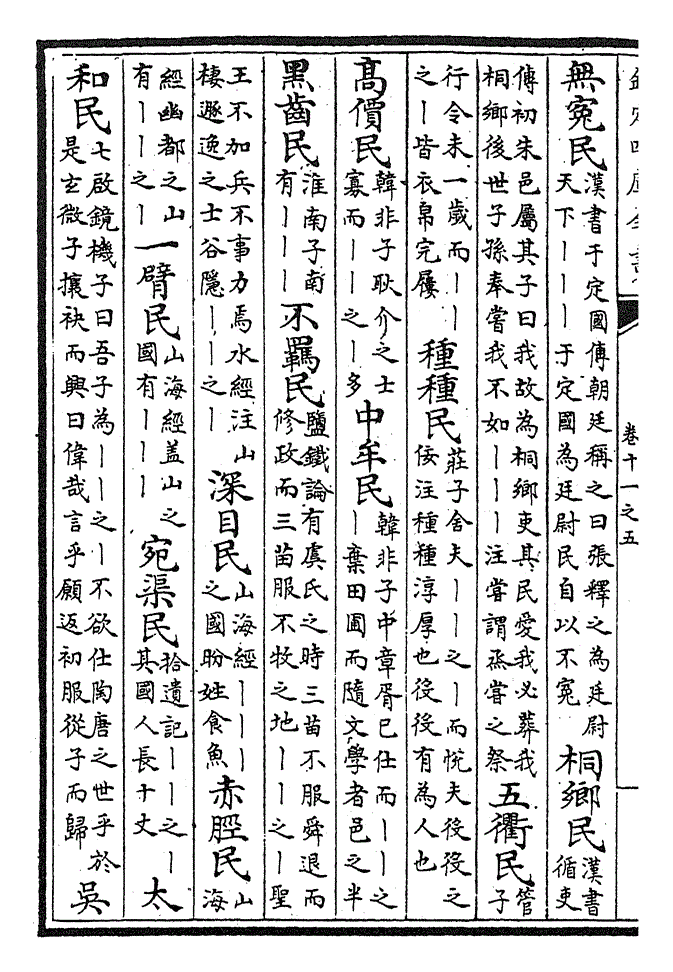 欽定四庫全書
卷十一之五
無寃民漢書于定國傳朝廷稱之曰張釋之為廷尉天下丨丨丨于定國為廷尉民自以不寃桐鄉民漢書循吏
傳初朱邑屬其子曰我故為桐鄉吏其民愛我必葬我桐鄉後世子孫奉嘗我不如丨丨丨注嘗謂烝嘗之祭五衢民管子
行令未一歲而丨丨之丨皆衣帛完屨種種民莊子舍夫丨丨之丨而悅夫役役之佞注種種淳厚也役役有為人也
高價民韓非子耿介之士寡而丨丨之丨多中牟民韓非子中章胥已仕而丨丨之丨棄田圃而隨文學者邑之半
黑齒民淮南子南有丨丨丨不羈民鹽鐵論有虞氏之時三苗不服舜退而修政而三苗服不牧之地丨丨之丨聖
王不加兵不事力焉水經注山棲遯逸之士谷隱丨丨之丨深目民山海經丨丨丨之國盼姓食魚赤脛民山海
經幽都之山有丨丨之丨一臂民山海經盖山之國有丨丨丨宛渠民拾遺記丨丨之丨其國人長十丈太
和民七啟鏡機子曰吾子為丨丨之丨不欲仕陶唐之世乎於是玄微子攘袂而興曰偉哉言乎願返初服從子而歸吳